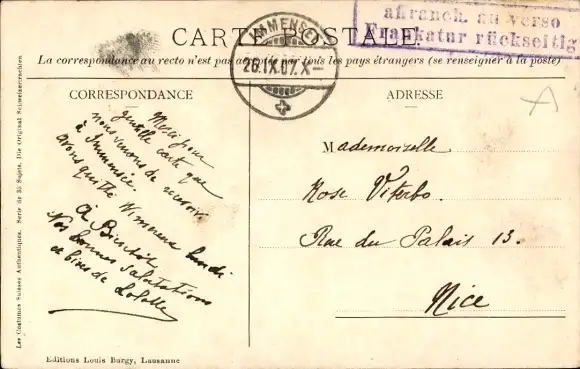 affranch. au verso
Frankatur rückseitig
CARTE POSTALE.
IMMENSEE
26.IX.07.X-
La correspondance au recto n'est pas acceptée par tous les pays étrangers (se renseigner à la poste)
CORRESPONDANCE
Merci pour
gentille carte que
nous venons de recevoir
à Immensee.
avons quitté lundi
à
Nos bonnes salutations
et bises de Lolotte
ADRESSE
Mademoiselle
Rose Viterbo.
Rue du Palais 13.
Nice
Les Costumes Suisses Authentiques. Serie de 35 Sujets. Die Original Schweizertrachten
Editions Louis Burgy, Lausanne